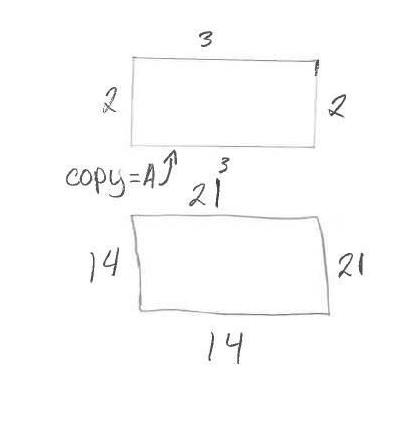 3
2 2
copy=A 3
21
14 21
14